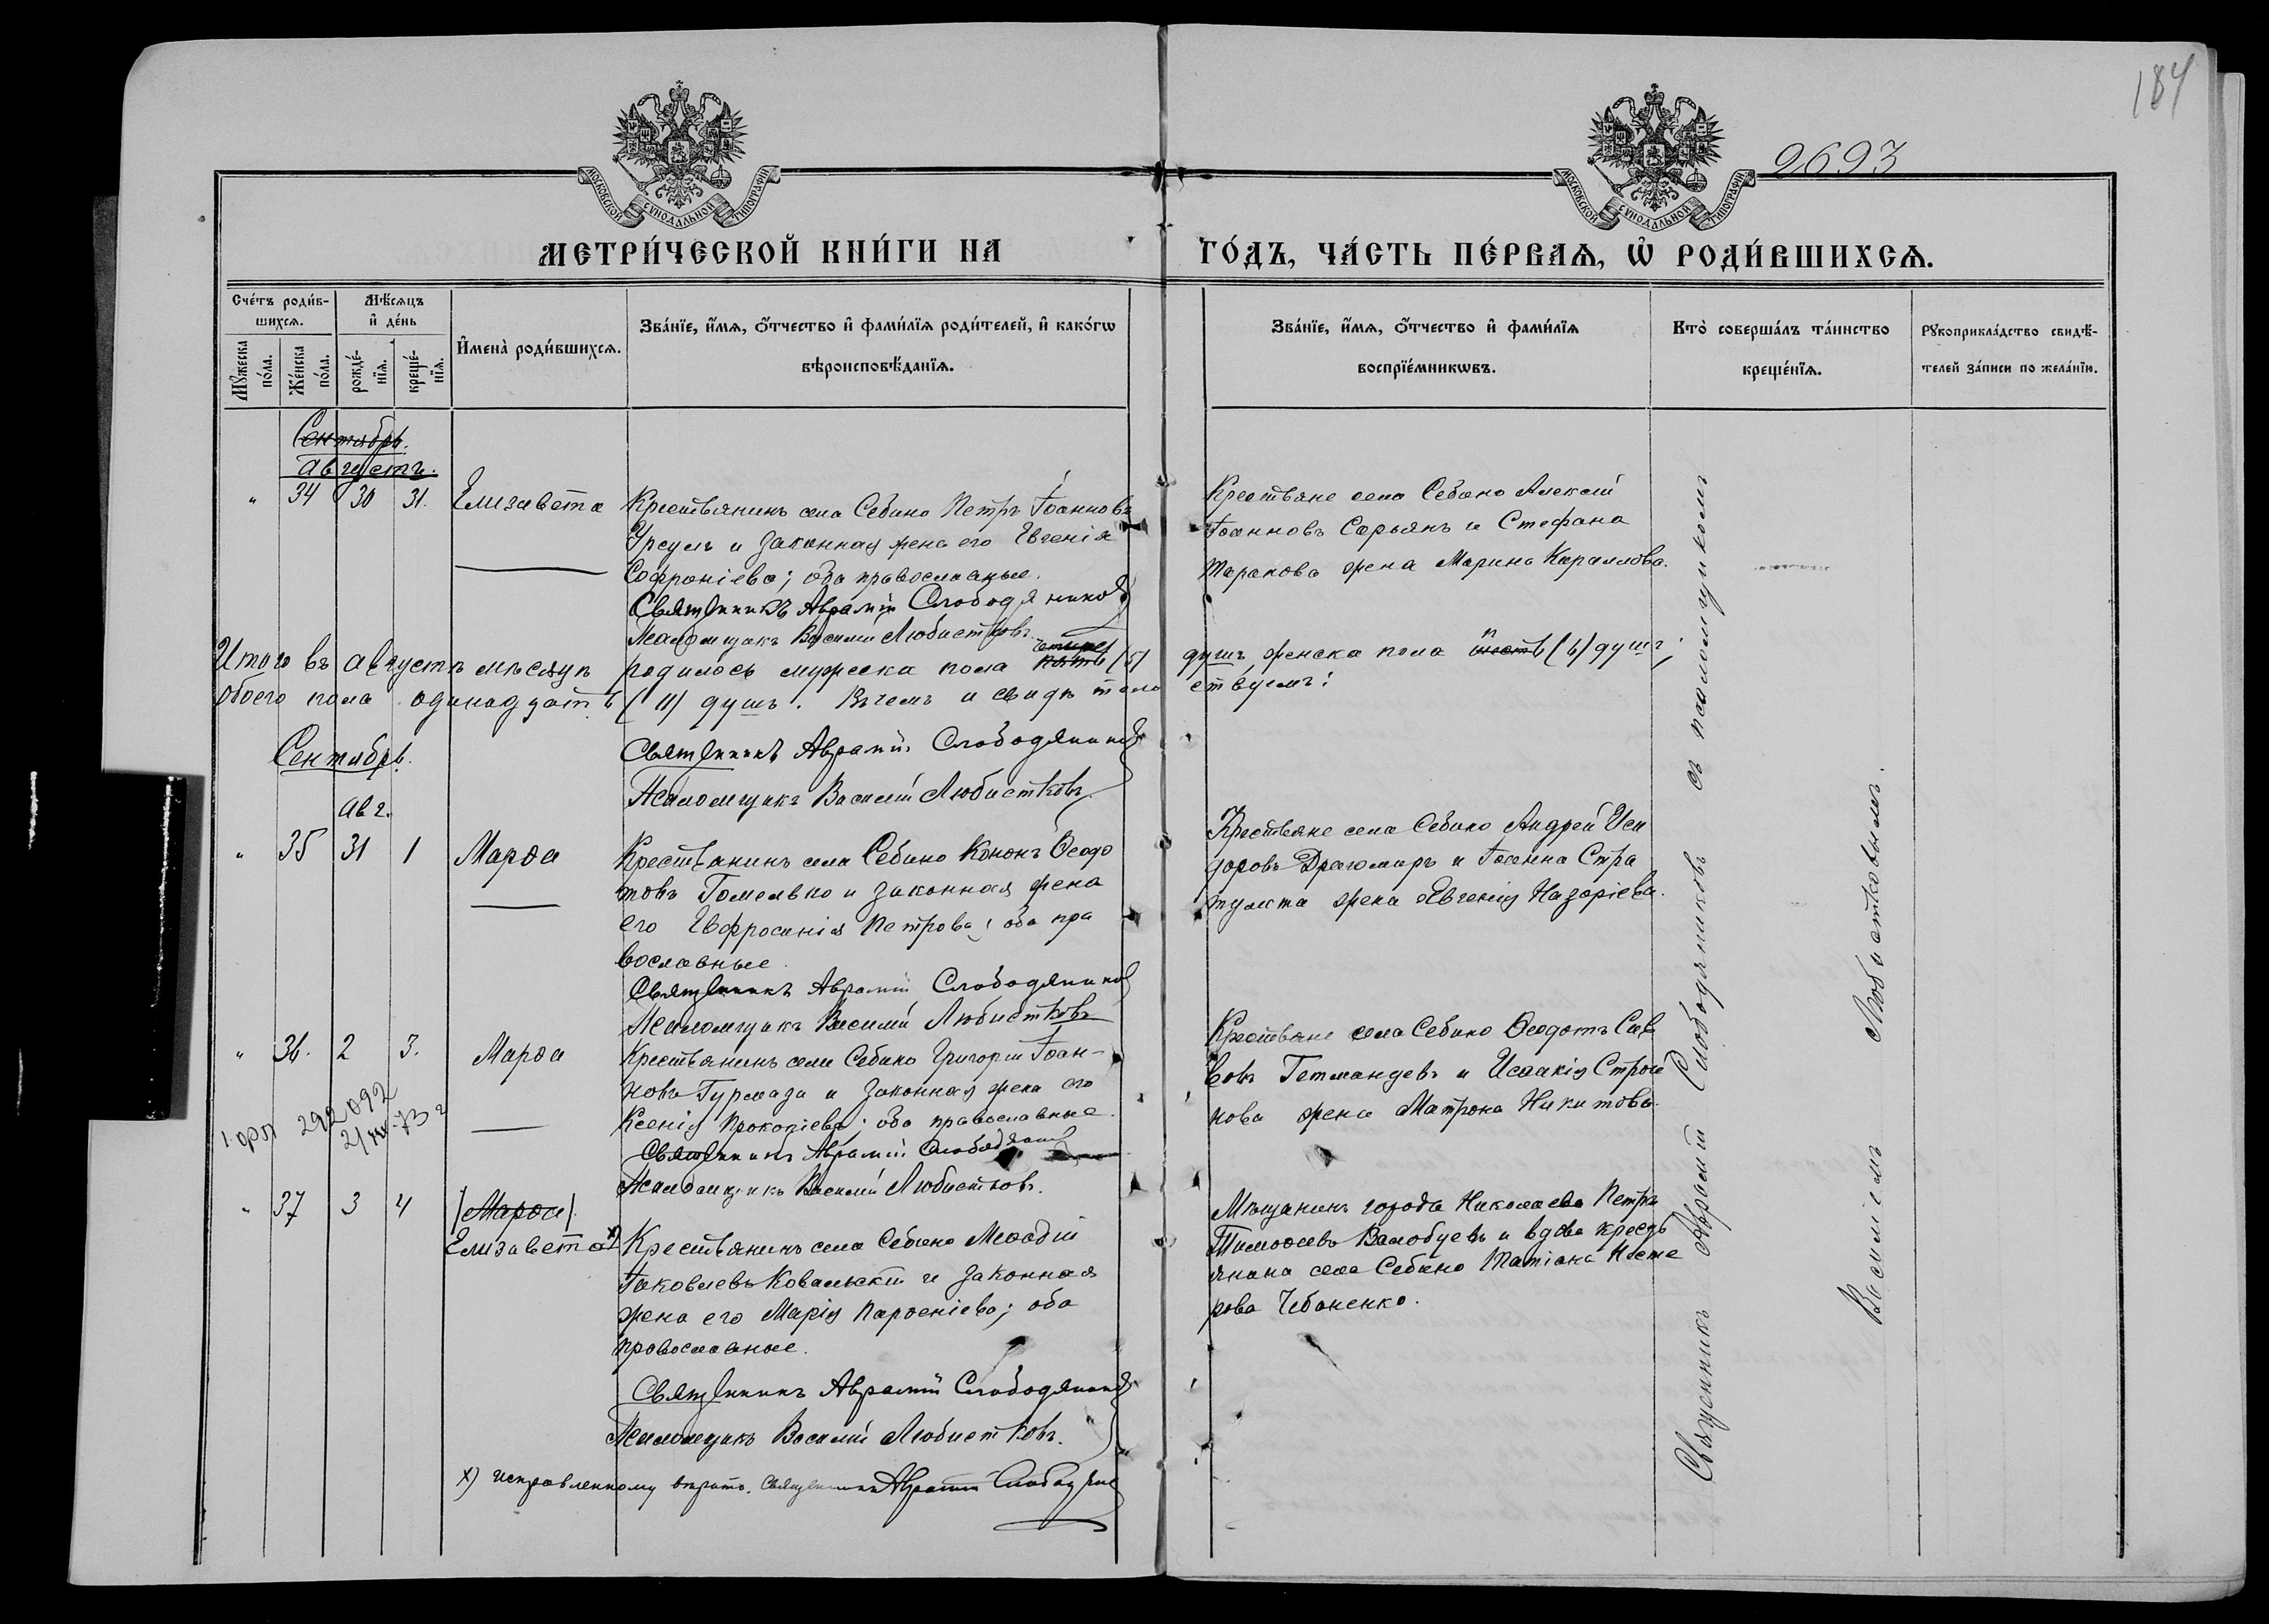 184
2693
МОСКОВСКОЙ СѴНОДАЛЬНОЙ ТИПОГРАФІИ
МОСКОВСКОЙ СѴНОДАЛЬНОЙ ТИПОГРАФІИ
МЕТРИ́ЧЕСКОЙ КНИ́ГИ НА ГО́ДЪ, ЧА́СТЬ ПЕ́РВАѦ, Ѡ҆ РОДИ́ВШИХСѦ.
Сче́тъ роди́в-
шихсѧ.
Мꙋжеска по́ла.
Же́нска по́ла.
Мѣ́сѧцъ
и҆ де́нь
рожде́-
нїѧ.
креще́-
нїѧ.
И҆мена̀ роди́вшихсѧ.
Зва́нїе, и҆́мѧ, ѻ҆́тчество и҆ фами́лїѧ роди́телей, и҆ како́гѡ
вѣроисповѣ́данїѧ.
Зва́нїе, и҆́мѧ, ѻ҆́тчество и҆ фами́лїѧ
воспрїе́мникѡвъ.
Кто̀ соверша́лъ та́инство
креще́нїѧ.
Рꙋкоприкла́дство свидѣ́-
телей за́писи по жела́нїю.
Сентябрь.
Августъ.
" 34 30 31. Елизавета
Крестьянинъ села Себино Петръ Іоанновъ
Урсулъ и законная жена его Евгенія
Софроніева; оба православные.
Священникъ Аврамій Слободяников
Псаломщикъ Василій Любистковъ.
Крестьяне села Себино Алексій
Іоанновъ Сарьянъ и Стефана
Таранова жена Марина Кириллова.
Итого въ августѣ мѣсяцѣ родилось мужеска пола четыре пять (5) душъ женска пола шесть (6) душъ;
обоего пола одинадцать (11) душъ. Въ чемъ и свидѣтельствуемъ:
Священникъ Аврамій Слободяников
Псаломщикъ Василій Любистковъ.
Сентябрь.
Авг.
" 35 31 1 Марѳа
Крестьянинъ села Себино Кононъ Ѳеодо
товъ Гомелько и законная жена
его Евфросинія Петрова; оба пра
вославные.
Священникъ Аврамій Слободяников
Псаломщикъ Василій Любистковъ
Крестьяне села Себино Андрей Иси
доровъ Драгомиръ и Іоанна Стра
тулата жена Евгенія Назаріева.
" 36. 2 3. Марѳа
Крестьянинъ села Себино Григорій Іоан-
новъ Гурмаза и законная жена его
Ксенія Прокопіева; оба православные.
Священникъ Аврамій Слободяник
Псаломщикъ Василій Любистковъ.
Крестьяне села Себино Ѳеодотъ Сав
вовъ Гетманцевъ и Исаакія Строй
нова жена Матрона Никитова.
292092
" 37 3 4 (Марѳа)
Елизавета х)
Крестьянинъ села Себино Меѳодій
Іаковлевъ Ковальскій и законная
жена его Марія Парѳеніева; оба
православные.
Священникъ Аврамій Слободяников
Псаломщикъ Василій Любистковъ.
Мѣщанинъ города Николаева Петръ
Тимоѳеевъ Валобуевъ и вдова кресть
янина села Себино Татіана Несте
рова Чебаненко.
х) Исправленному вѣрить. Священникъ Аврамій Слободяник
Священникъ Аврамій Слободяниковъ съ псаломщикомъ
Василіемъ Любистковымъ.